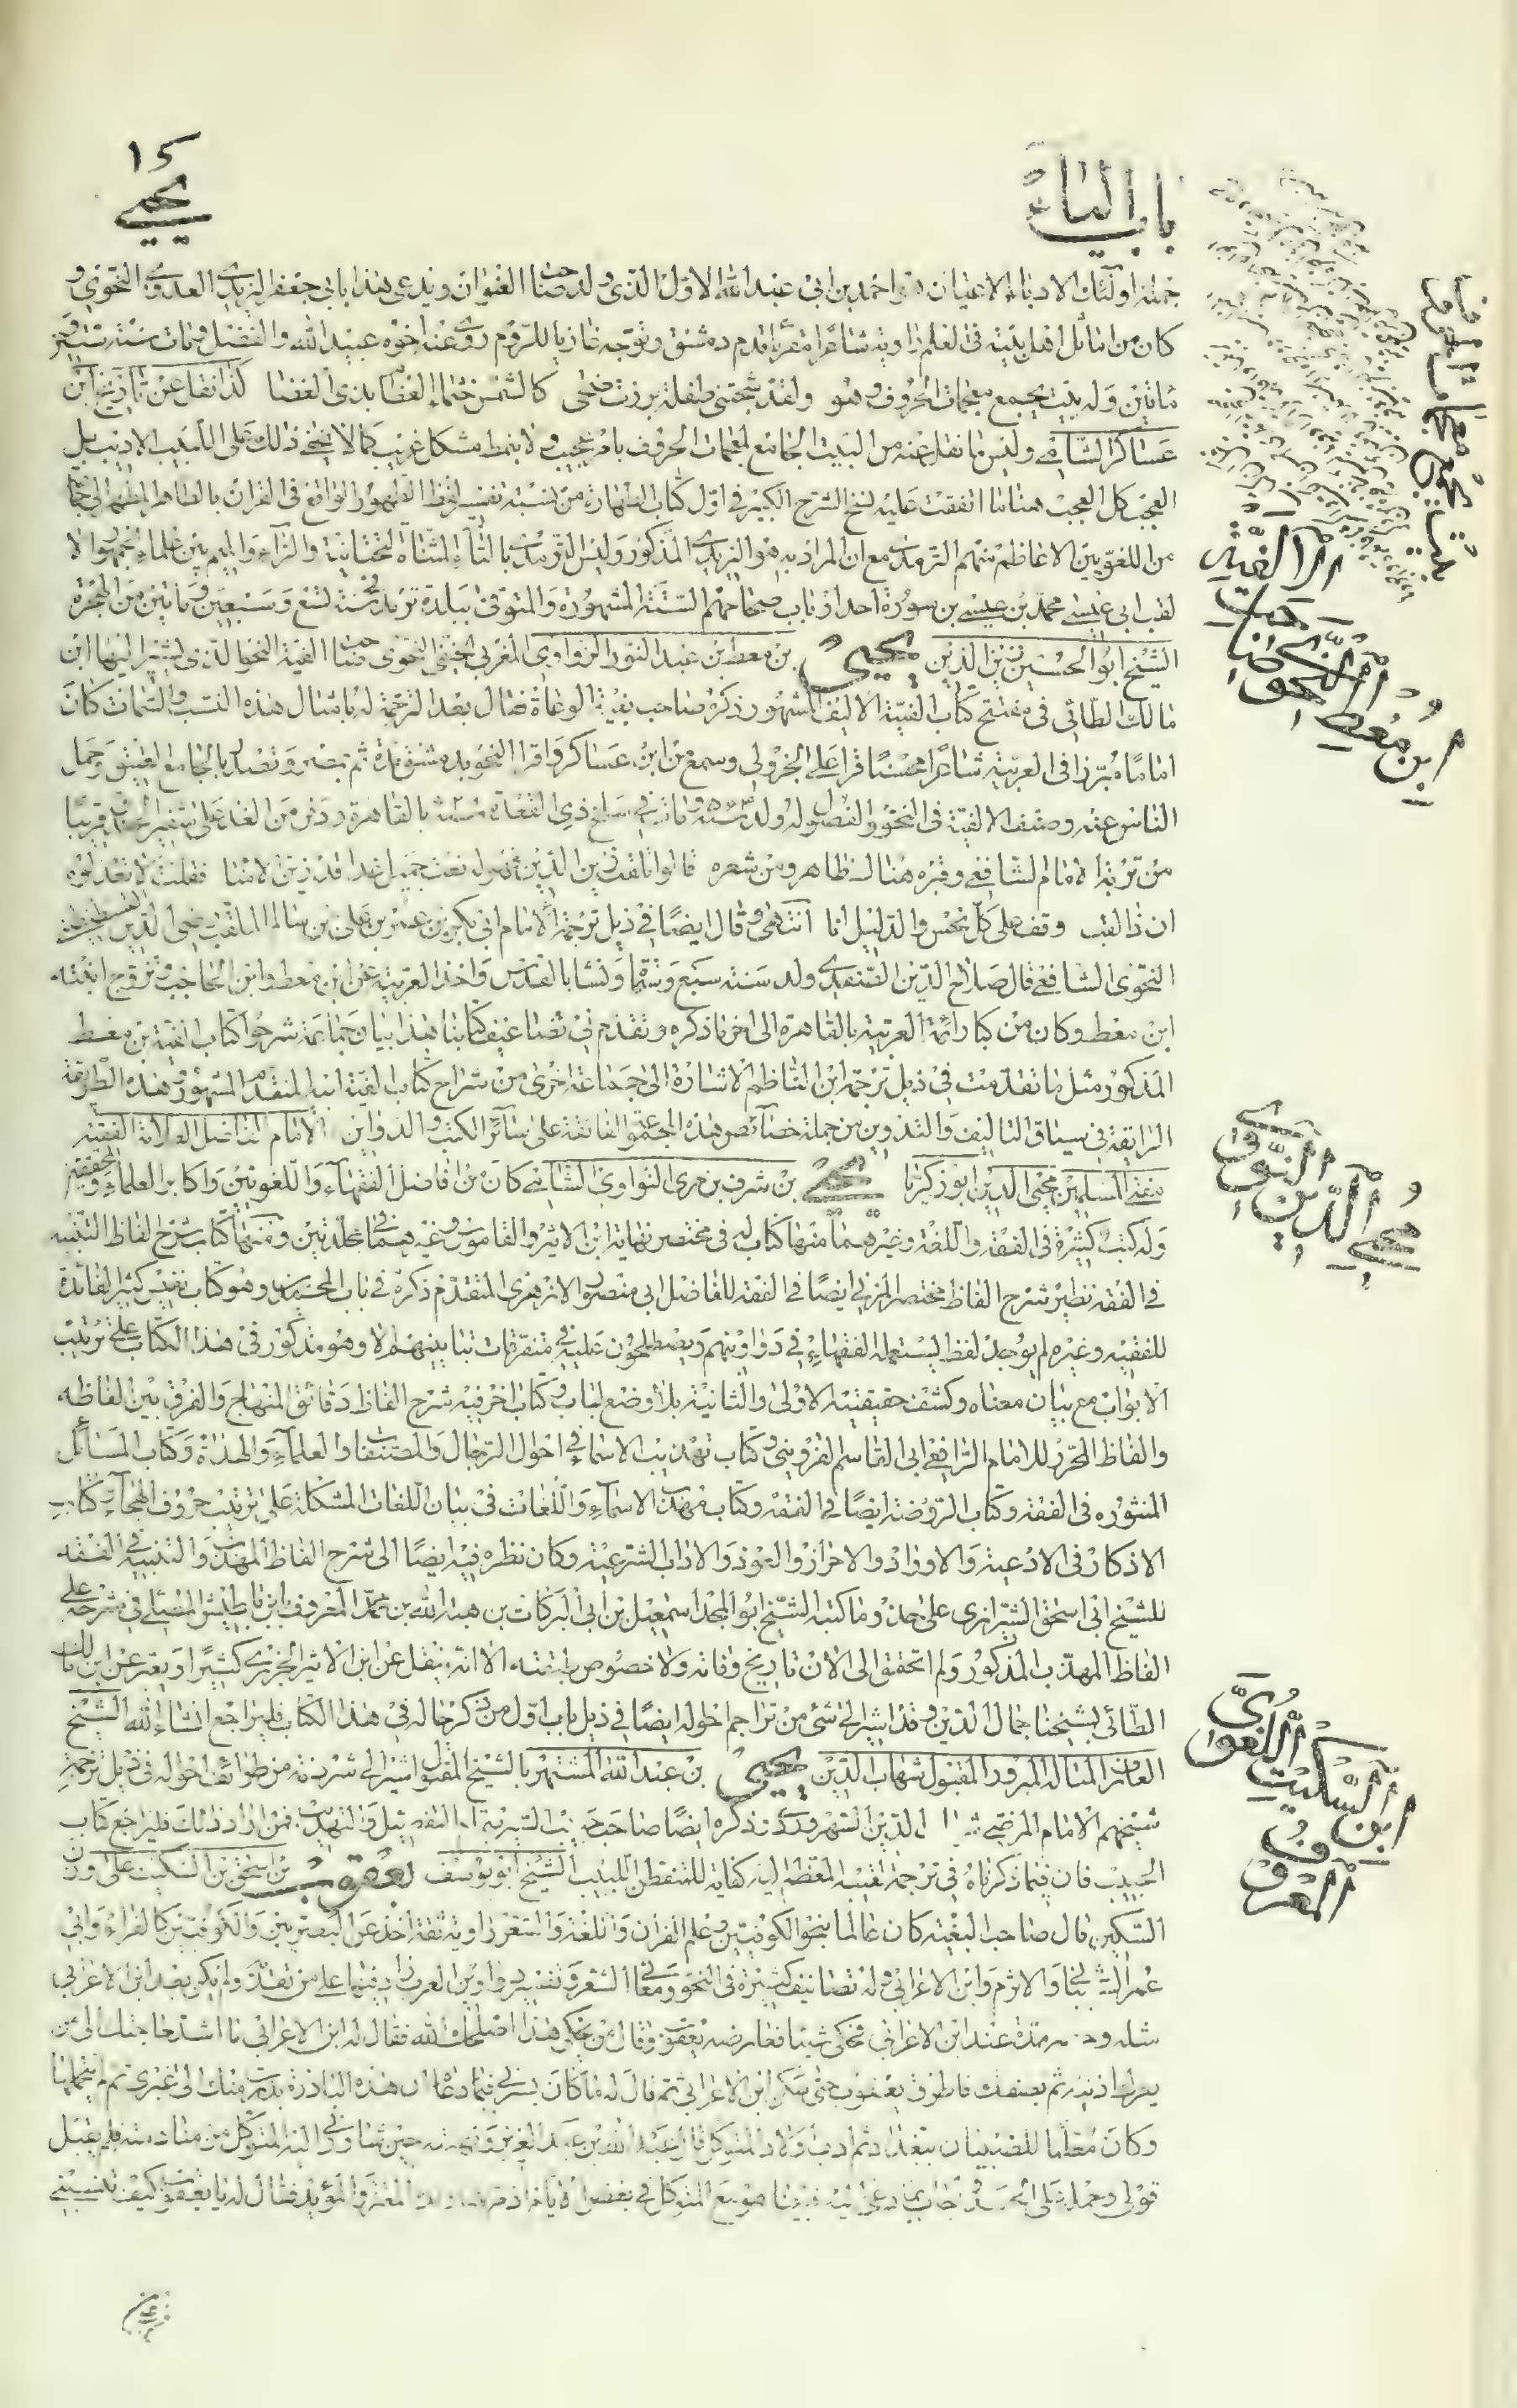 ١٥
يحيى
باب الياء
جملة اولئك الادباء الاعيان هو احمد بن ابى عبد الله الاول الذى ولد صاحب العنوان ويدعى هذا بابى جعفر اليزيدى العدوى النحوى و
كان من اماثل اهل بيته فى العلم راوية شاعرا مقرئا قدم دمشق وتوجه غازيا للروم روى عنه اخوه عبيد الله والفضل ومات سنة ستين و
مأتين وله بيت يجمع معجمات الحروف وهو ولقد شجتنى طفلة برزت ضحى كالشمس خثماء الغضا بذى الغضا كذا نقل عن تاريخ ابن
عساكر الشافعى وليس ما نقل عنه من البيت الجامع لمعجمات الحروف بامر عجيب ولا بنمط مشكل غريب كما لا يخفى ذلك على اللبيب الاديب بل
العجب كل العجب هنا ما اتفقت عليه نسخ الشرح الكبير فى اول كتاب الطهارة من نسبة تفسير لفظ الطهور الواقع فى القران بالطاهر المطهر الى جماعة
من اللغويين الاعاظم منهم الترمذى مع ان المراد به هو اليزيدى المذكور وليس الترمذى بالتاء المثناة الفوقانية والراء والميم بين علماء الجمهور الا
لقب ابى عيسى محمد بن عيسى بن سورة احد ارباب صحاحهم الستة المشهورة والمتوفى ببلدة ترمذ فى سنة تسع وسبعين ومأتين من الهجرة
الشيخ ابو الحسين زين الدين يحيى بن معط بن عبد النور الزواوى المغربى الحنفى النحوى صاحب الفية النحو الذى يشير اليها ابن
مالك الطائى فى مفتتح كتاب الفيته الاليف المشهور ذكره صاحب بغية الوعاة فقال بعد الترجمة له بامثال هذه النسب والسمات كان
اماما مبرزا فى العربية شاعرا محسنا قرا على الجزولى وسمع من ابن عساكر واقرا النحو بدمشق مدة ثم بمصر وتصدر بالجامع العتيق وحمل
الناس عنه وصنف الالفية فى النحو والفصول له ولد سنة ٥٦٤ ومات فى سلخ ذى القعدة سنة ٦٢٨ بالقاهرة ودفن من الغد على شفير الخندق قريبا
من تربة الامام الشافعى وقبره هناك ظاهر ومن شعره قالوا تلقب زين الدين فهو له نعت جميل غدا قد زين الامنا فقلت لا تعذلوه
ان ذا لقب وقف على كل نحس والدليل انا انتهى وقال ايضا فى ذيل ترجمة الامام ابى بكر بن عمر بن على بن سالم الملقب برضى الدين القسطنطينى
النحوى الشافعى قال صلاح الدين الصفدى ولد سنة سبع وستمأة ونشا بالقدس واخذ العربية عن ابن معط وابن الحاجب وتزوج ابنة
ابن معط وكان من كبار ائمة العربية بالقاهرة الى اخر ما ذكره وتقدم فى تضاعيف كتابنا هذا بيان جماعة شرحوا كتاب الفية ابن معط
المذكور مثل ما تقدمت فى ذيل ترجمة ابن الناظم الاشارة الى جماعة اخرى من شراح كتاب الفية ابيه المتقدم المشهور وهذه الطريقة
الرايقة فى سياق التاليف والتدوين من جملة خصائص هذه المجموعة الفائقة على سائر الكتب والدواوين الامام الفاضل العلامة الفقيه
مفتى المسلمين محيى الدين ابو زكريا يحيى بن شرف بن مرى النواوى الشافعى كان من افاضل الفقهاء واللغويين واكابر العلماء والمحققين
وله كتب كثيرة فى الفقه واللغة وغيرهما منها كتاب له فى مختصر نهاية ابن الاثير والقاموس وغيرهما فى مجلدتين ومنها كتاب شرح الفاظ التنبيه
فى الفقه نظير شرح الفاظ مختصر المزنى ايضا فى الفقه للفاضل ابى منصور الازهرى المتقدم ذكره فى باب المحمدين وهو كتاب نفيس كثير الفائدة
للفقيه وغيره لم يوجد لفظ يستعمله الفقهاء فى دواوينهم ويصطلحون عليه فى متفرقات ما بينهم الا وهو مذكور فى هذا الكتاب على ترتيب
الابواب مع بيان معناه وكشف حقيقتيه الاولى والثانية بلا وضع لباب وكتاب اخر فيه شرح الفاظ دقائق المنهاج والفرق بين الفاظه
والفاظ المحرر للامام الرافعى ابى القاسم القزوينى وكتاب تهذيب الاسماء فى احوال الرجال والمصنفات والعلماء والهداة وكتاب المسائل
المنثوره فى الفقه وكتاب الروضة ايضا فى الفقه وكتاب مهذب الاسماء واللغات فى بيان اللغات المشكلة على ترتيب حروف الهجاء وكتاب
الاذكار فى الادعية والاوراد والاحراز والعوذ والاداب الشرعية وكان نظره فيه ايضا الى شرح الفاظ المهذب والتنبيه فى الفقه
للشيخ ابى اسحق الشيرازى على حذو ما كتبه الشيخ ابو المجد اسمعيل بن ابى البركات بن هبة الله بن محمد المعروف بابن باطيش الموصلى فى شرحه على
الفاظ المهذب المذكور ولم اتحقق الى الان تاريخ وفاته ولا خصوص طبقته الا انه ينقل عن ابن الاثير الجزرى كثيرا ويعبر عن ابن مالك
الطائى بشيخنا جمال الدين وقد اشير الى شئ من تراجم احواله ايضا فى ذيل باب اول من ذكر حاله فى هذا الكتاب فليراجع انشاء الله الشيخ
العارف المتاله المبرور المقبول شهاب الدين يحيى بن عبد الله المشتهر بالشيخ المقتول اشير الى شرذمة من طوائف احواله فى ذيل ترجمة
شيخهم الامام المرضى شهاب الدين السهروردى وذكره ايضا صاحب حبيب السير بالتفصيل والتهذيب فمن اراد ذلك فليراجع كتاب
الحبيب فان فيما ذكرناه فى ترجمة لقيبه المعظم اليه كفاية للمتفطن اللبيب الشيخ ابو يوسف يعقوب بن اسحق بن السكيت على وزن
السكير قال صاحب البغية كان عالما بنحو الكوفيين وعلم القران واللغة والشعر راوية ثقة اخذ عن البصريين والكوفيين كالفراء وابى
عمرو الشيبانى والاثرم وابن الاعرابى وله تصانيف كثيرة فى النحو ومعانى الشعر وتفسير دواوين العرب زاد فيها على من تقدمه ولم يكن بعد ابن الاعرابى
مثله وحضر مرة عند ابن الاعرابى فحكى شيئا فعارضه يعقوب وقال من يحكى هذا اصلحك الله فقال له ابن الاعرابى ما اشد حاجتك الى من
يعرك اذنيه ثم يصفعك فاطرق يعقوب حتى سكن ابن الاعرابى ثم قال له ما كان يسرنى فيما دعا هذه البادرة بدرت منك الى غيرى ثم لم يحتملها
وكان معلما للصبيان ببغداد ثم ادب اولاد المتوكل قال عبد الله بن عبد العزيز ونهيته حين شاورنى والنه المتوكل من منادمته فلم يقبل
قولى وحمله على الحسد واجاب بما دعى اليه فبينا هو مع المتوكل فى بعض الايام اذ مر به ولداه المعتز والمؤيد فقال له يا يعقوب كيف
ابن معط
النحوى صاحب
الالفية
محيى الدين النووى
ابن السكيت اللغوى
المعروف